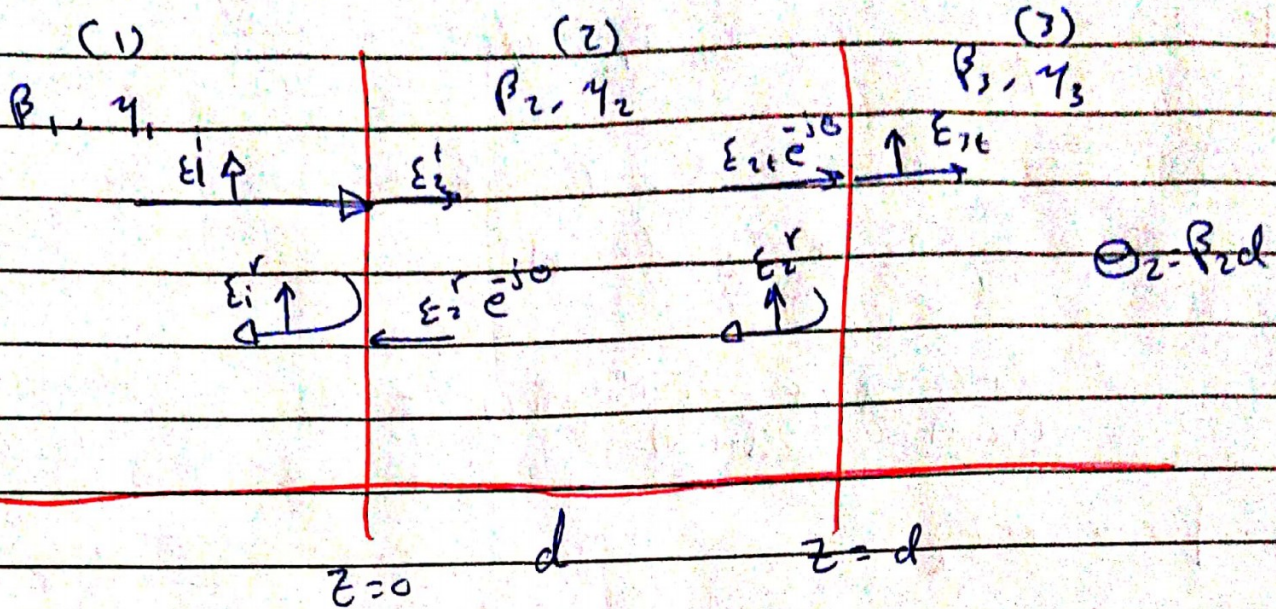 (1) (2) (3)
β₁, η₁ β₂, η₂ β₃, η₃
Ɛ₁ⁱ Ɛ₂ᵗ Ɛ₂ₜ e^-jθ Ɛ₃ₜ
Ɛ₁ʳ Ɛ₂ʳ e^-jθ Ɛ₂ʳ Θ₂=β₂d
z=0 d z=d